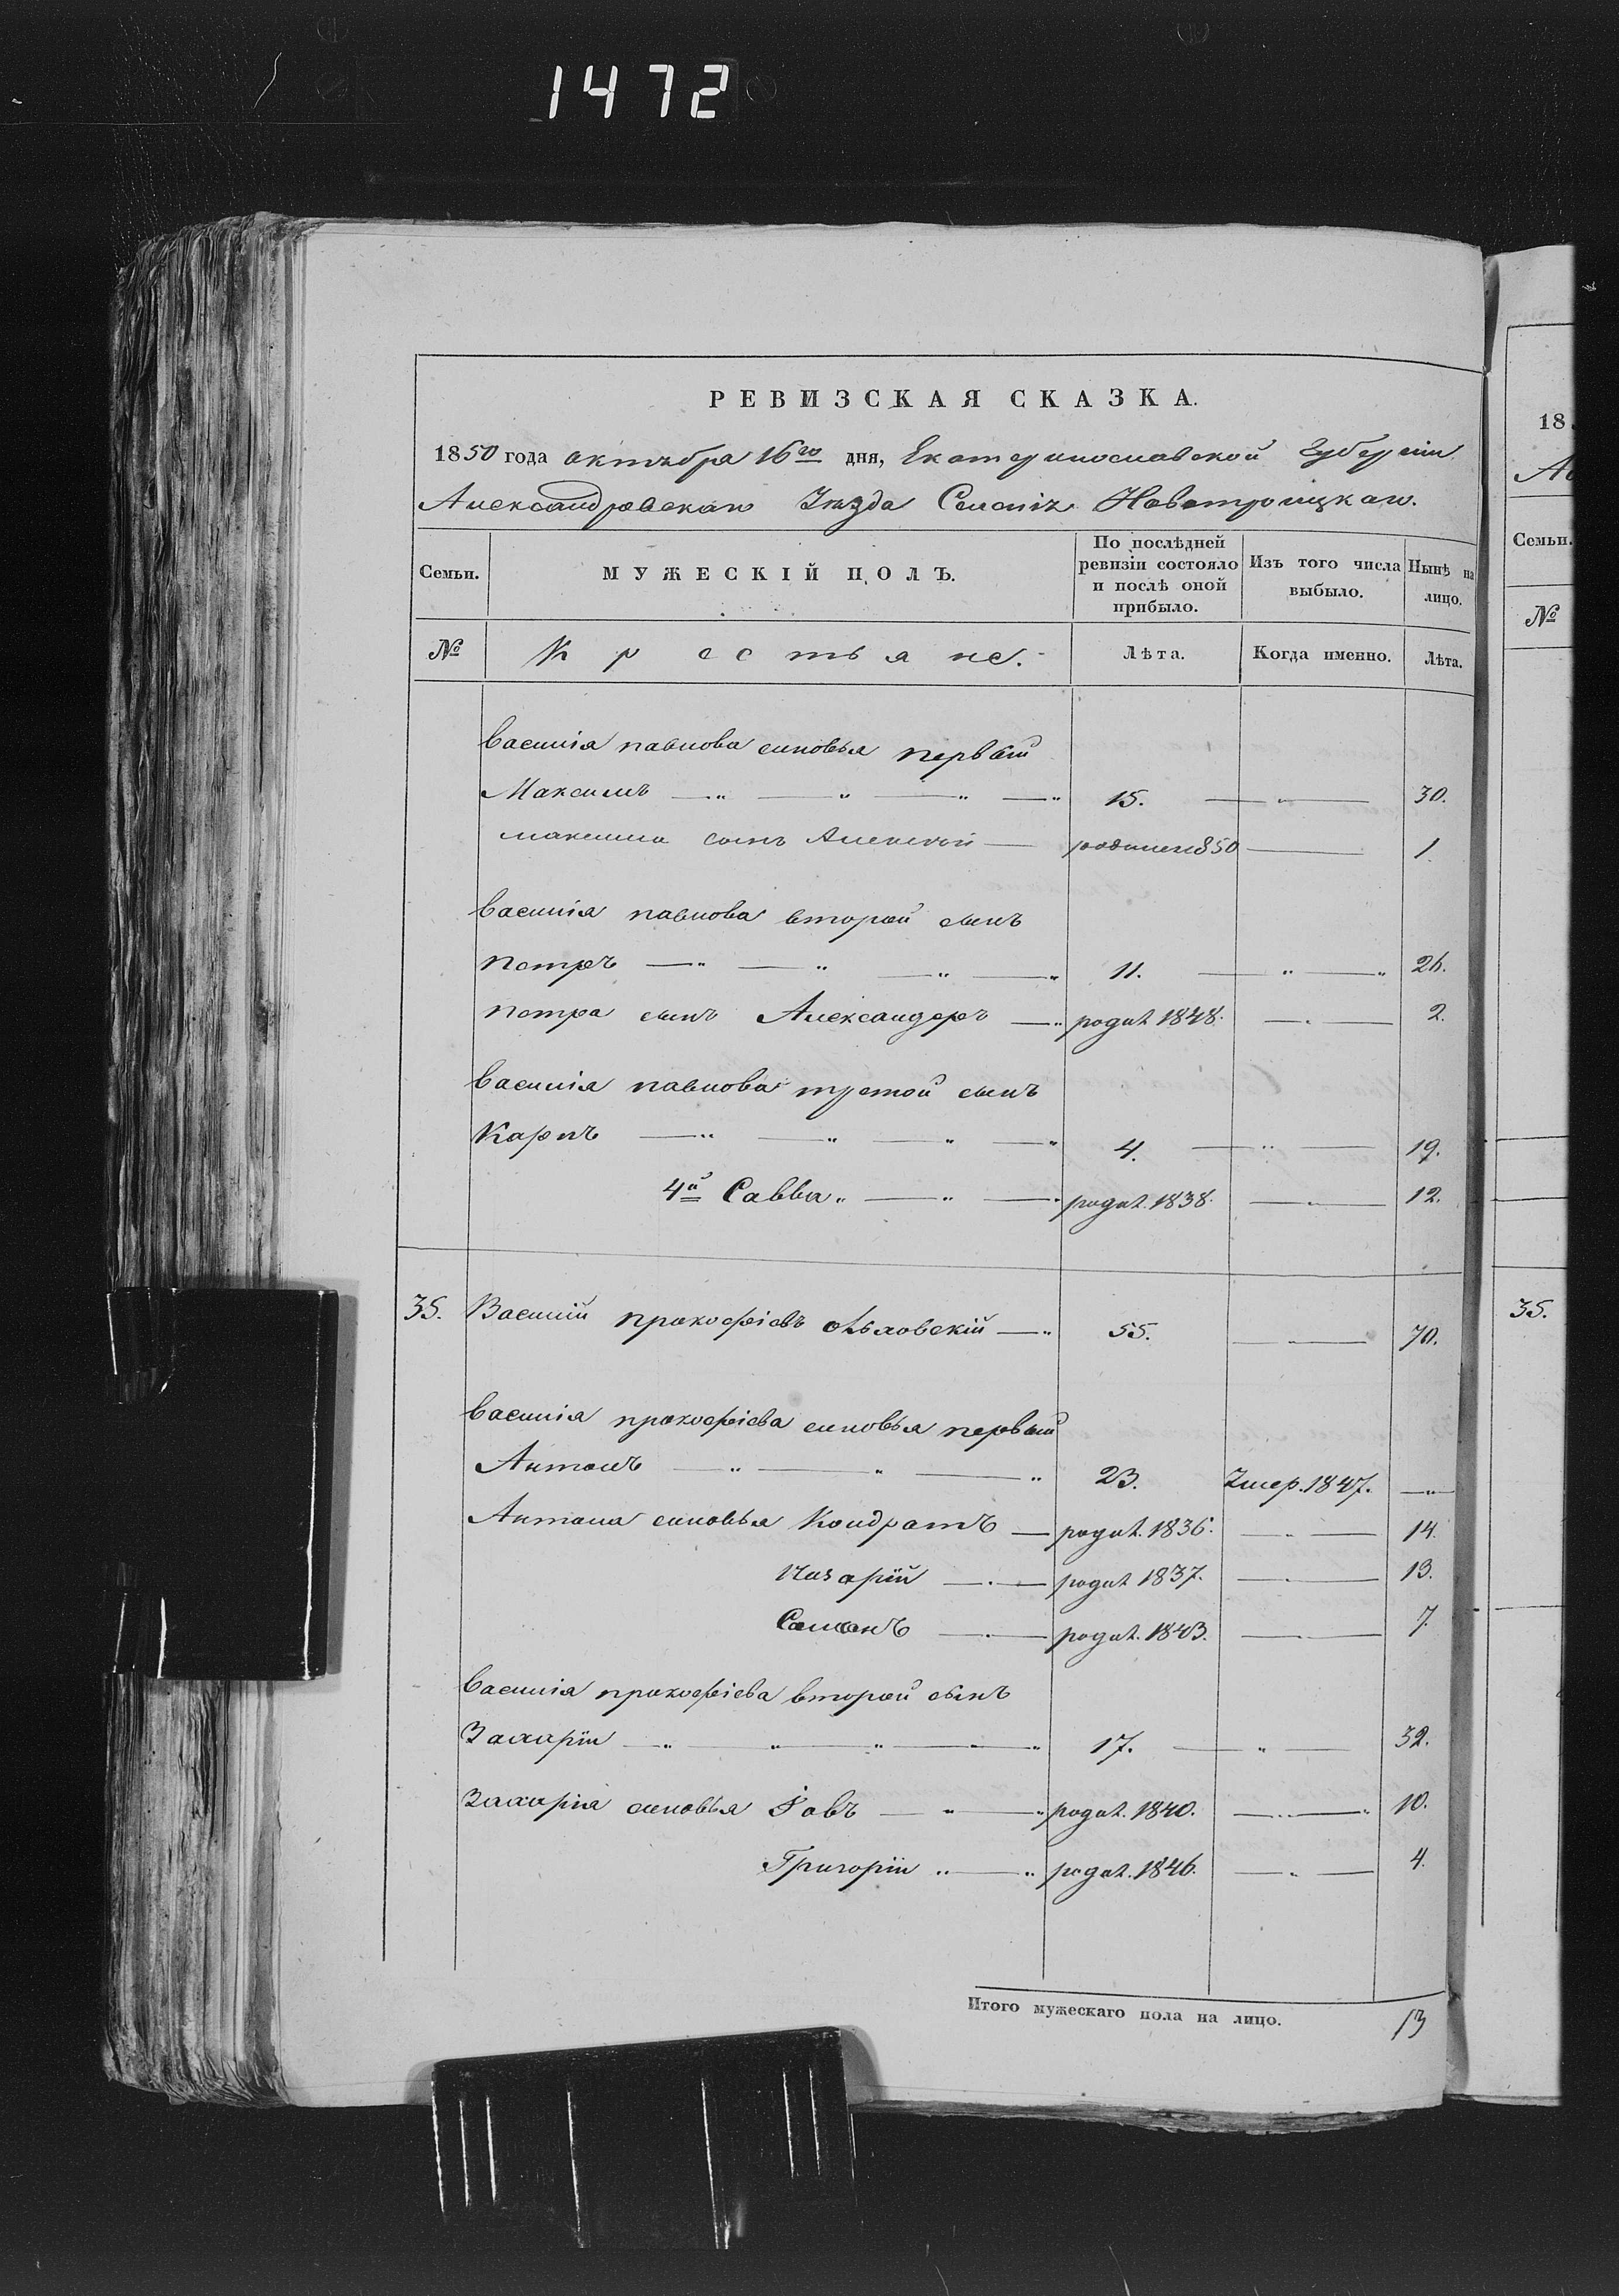 1472
РЕВИЗСКАЯ СКАЗКА.
1850 года октября 16го дня, Екатеринославской Губерніи
Александровскаго Уѣзда Селенія Новотроицкаго.
Семьи. МУЖЕСКІЙ ПОЛЪ. По послѣдней ревизіи состояло и послѣ оной прибыло. Изъ того числа выбыло. Нынѣ на лицо.
№ Крестьяне. Лѣта. Когда именно. Лѣта.
Василія павлова синовья первый
Максимъ 15. 30.
максима сынъ Алексѣй 1850 1.
Василія павлова второй сынъ
Петръ 11. 26.
петра сынъ Александеръ родил. 1848. 2.
Василія павлова третой сынъ
Карпъ 4. 19.
4й Савва родил. 1838. 12.
35. Василій прокофіевъ 55. 70.
Василія прокофіева синовья первый
Антонъ 23. Умер. 1847.
Антона синовья Кондратъ родил. 1836. 14.
Назарій родил. 1837. 13.
родил. 1843. 7.
Василія прокофіева второй сынъ
Захарій 17. 32.
Захарія синовья Іовъ родил. 1840. 10.
Григорій родил. 1846. 4.
Итого мужескаго пола на лицо. 13
18
Семьи.
№
35.